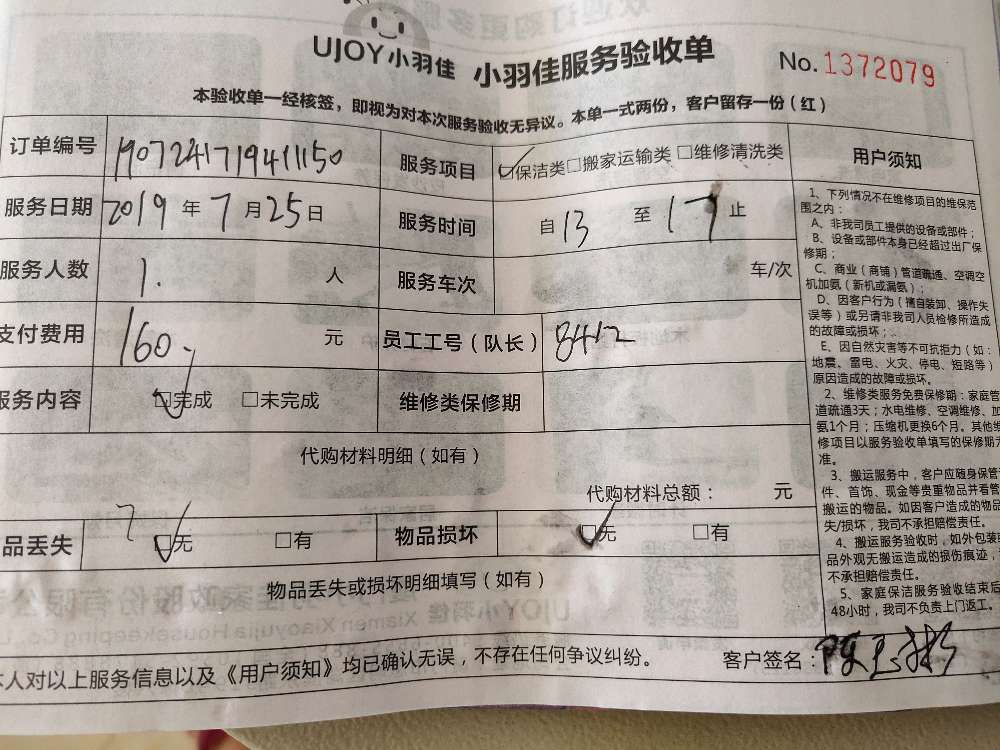 UJOY小羽佳 小羽佳服务验收单 No.1372079
本验收单一经核签，即视为对本次服务验收无异议。本单一式两份，客户留存一份（红）
订单编号 190724171941150 服务项目 保洁类 □搬家运输类 □维修清洗类
服务日期 2019年7月25日 服务时间 自13至17止
服务人数 1. 人 服务车次 车/次
支付费用 160. 元 员工工号（队长） 8412
服务内容 □完成 □未完成 维修类保修期
代购材料明细（如有）
代购材料总额： 元
品丢失 □无 □有 物品损坏 □无 □有
物品丢失或损坏明细填写（如有）
本人对以上服务信息以及《用户须知》均已确认无误，不存在任何争议纠纷。 客户签名：
用户须知
1、下列情况不在维修项目的维保范
围之内：
A、非我司员工提供的设备或部件；
B、设备或部件本身已经超过出厂保
修期；
C、商业（商铺）管道疏通、空调空
机加氨（新机或漏氨）；
D、因客户行为（擅自装卸、操作失
误等）或另请非我司人员检修所造成
的故障或损坏；
E、因自然灾害等不可抗拒力（如：
地震、雷电、火灾、停电、短路等）
原因造成的故障或损坏。
2、维修类服务免费保修期：家庭管
道疏通3天；水电维修、空调维修、加
氨1个月；压缩机更换6个月。其他维
修项目以服务验收单填写的保修期为
准。
3、搬运服务中，客户应随身保管
件、首饰、现金等贵重物品并看管
搬运的物品。如因客户造成的物品
失/损坏，我司不承担赔偿责任。
4、搬运服务验收时，如外包装
品外观无搬运造成的损伤痕迹，
不承担赔偿责任。
5、家庭保洁服务验收结束后
48小时，我司不负责上门返工。